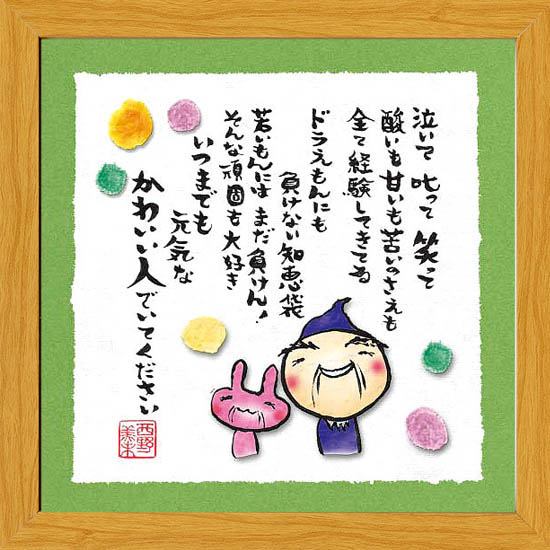 泣いて 叱って 笑って
酸いも 甘いも 苦いのさえも
全て経験してきてる
ドラえもんにも
負けない知恵袋
若いもんには まだ負けん!
そんな頑固も大好き
いつまでも
元気な
かわいい人でいてください
西野
美未